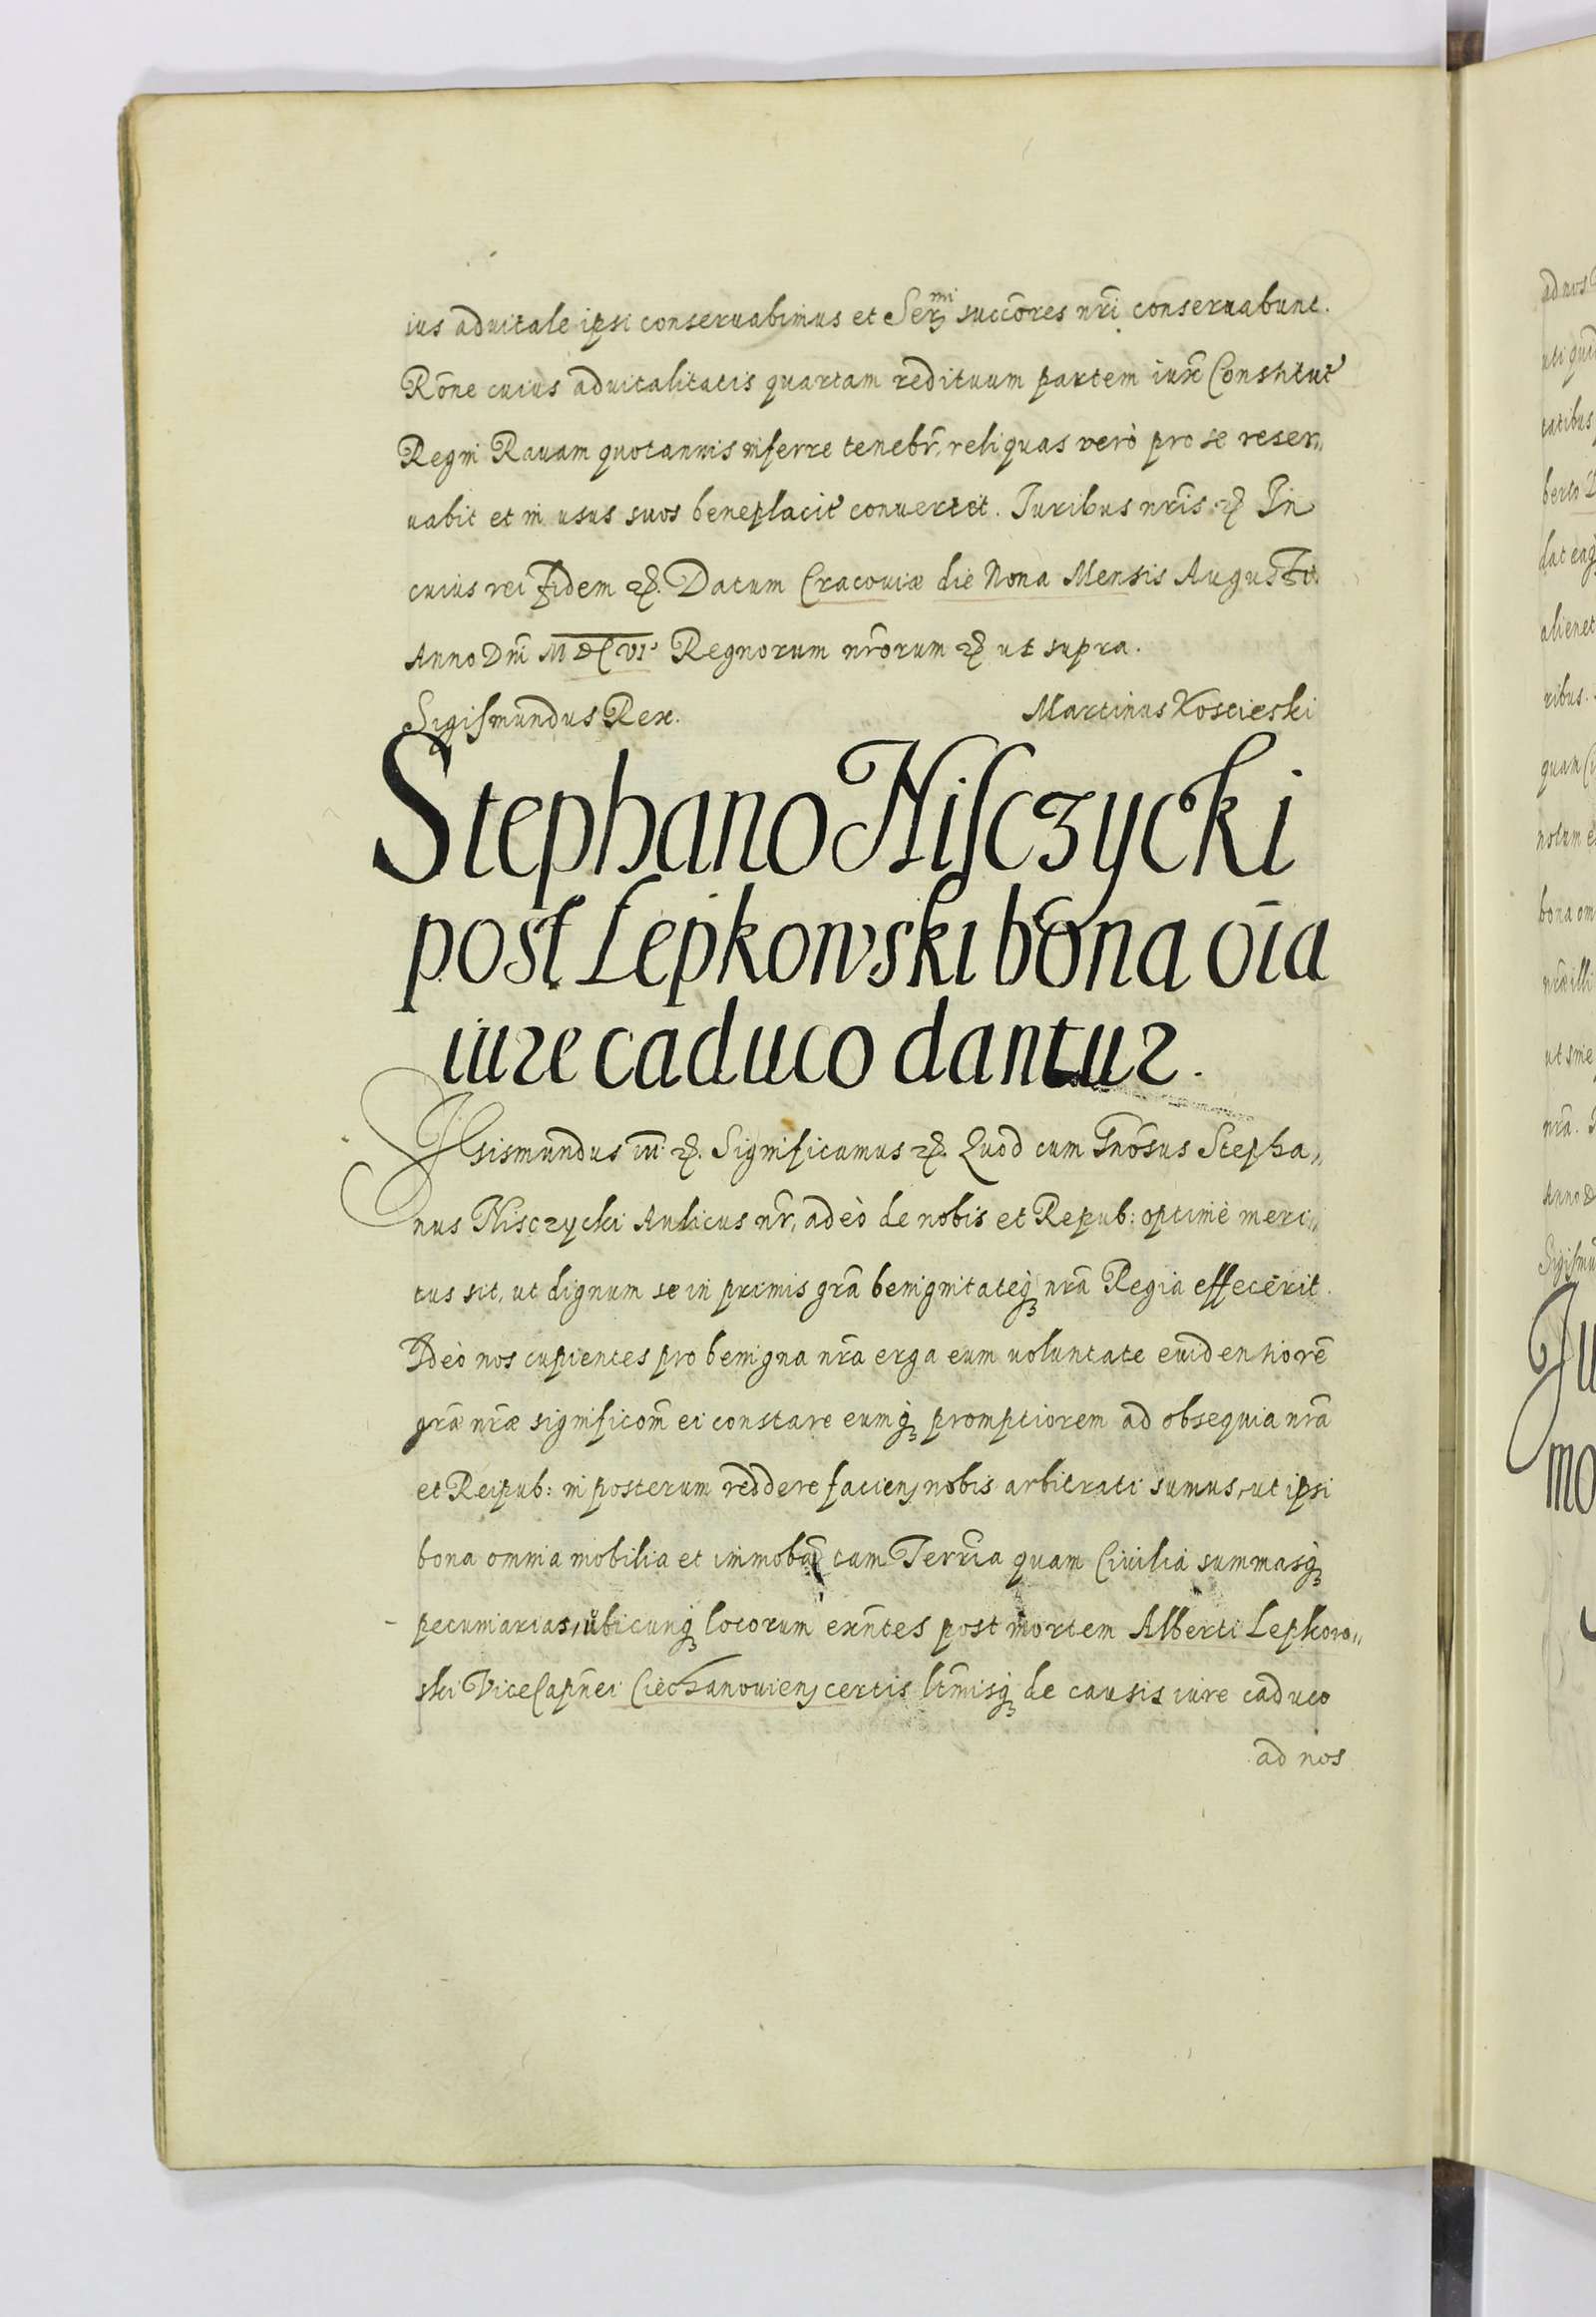 ius aduitale ipsi conseruabimus et Ser̃mi succõres nr̃i conseruabunt.
Rõne cuius aduitalitatis quartam redituum partem iux̃ Constitut
Regni Rauam quotannis inferre tenebr̃, reliquas verò pro se reser„
uabit et in usus suos beneplacit conuertet. Iuribus nr̃is ꝛc̃ In
cuius rei fidem ꝛc̃. Datum Cracouiæ die Nona Mensis Augusti
Anno Dnĩ MDCVIº Regnorum nr̃orum ꝛc̃ ut supra.
Sigismundus Rex. Martinus Kościeski
Stephano Niſczycki
post Łepkowski bona oĩa
iure caduco dantur.
Sigismundus iii ꝛc̃. Significamus ꝛc̃. Quod cum Gnõsus Stepha„
nus Nisczycki Aulicus nr̃, adeò de nobis et Repub: optimè meri„
tus sit, ut dignum se in primis grã benignitateq́ꝫ nrã Regia effecerit.
Ideò nos cupientes pro benigna nrã erga eum uoluntate euidentiorẽ
grãe nrãe significom̃ ei constare eumq́ꝫ promptiorem ad obsequia nrã
et Reipub: in posterum reddere facienꝫ nobis arbitrati sumus, ut ipsi
bona omnia mobilia et immobã tam Terrĩa quam Ciuilia summasq́ꝫ
pecuniarias, ubicunq́ꝫ locorum exñtes post mortem Alberti Lepkow„
ski ViceCapñei Ciechanouienꝫ certis ltm̃isq́ꝫ de causis iure caduco
ad nos